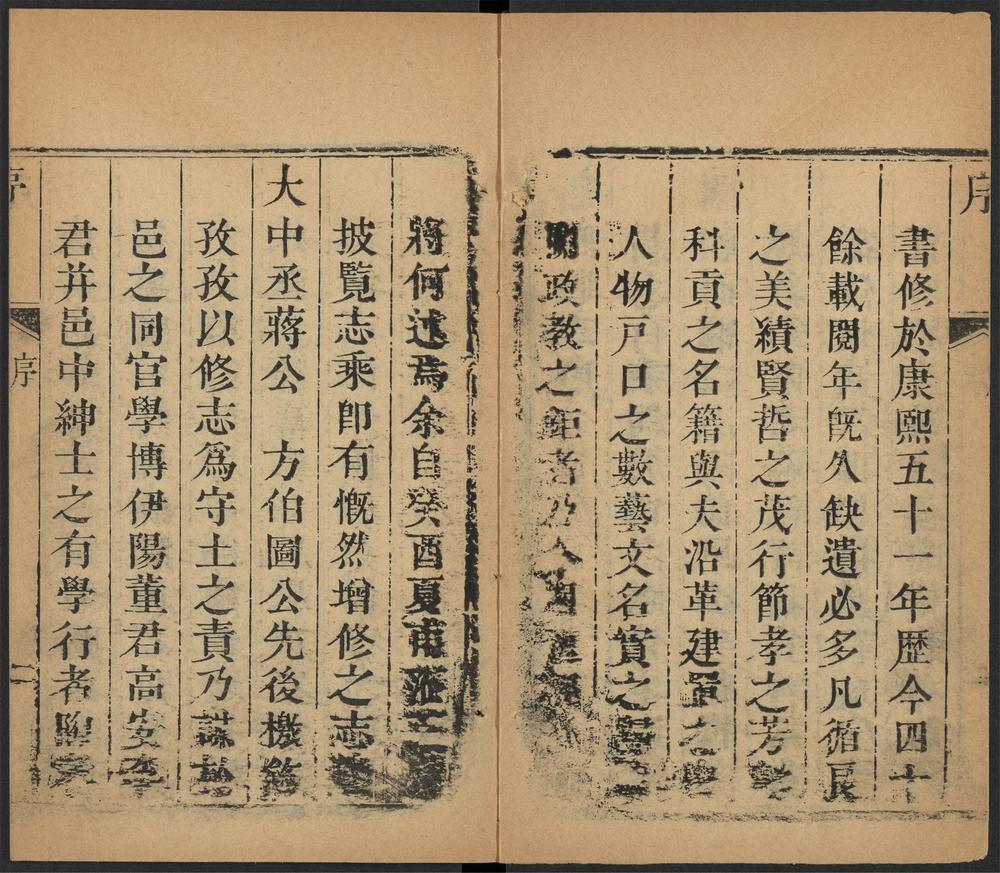 序
書修於康熙五十一年歴今四十
餘載閱年旣久缺遺必多凡循良
之美績賢哲之茂行節孝之芳
科貢之名籍與夫沿革建置之
人物戸口之數藝文名實之
政教之鉅者乃人
將何述焉余自癸酉夏甫
披覽志乘卽有慨然增修之志
大中丞蔣公 方伯圖公先後檄
孜孜以修志爲守土之責乃謀
邑之同官學博伊陽董君高安李
君并邑中紳士之有學行者
序
序
二